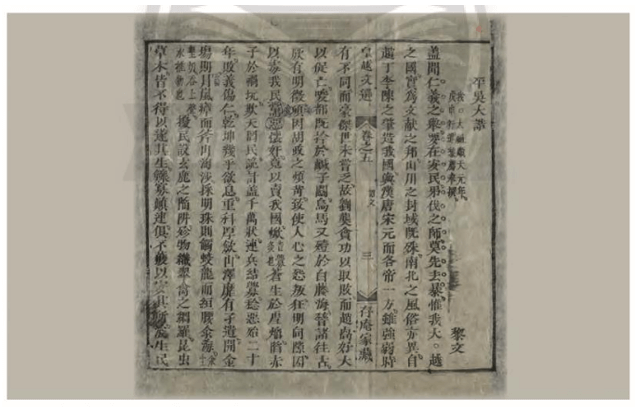 平吳大誥
黎文
蓋聞仁義之舉要在安民弔伐之師莫先去暴惟我大。越
之國實為文献之邦山川之封域既殊南北之風俗亦異自
趙丁李陳之肇造我國與漢唐宋元而各帝一方雖強弱時
皇越文選 卷之五 誥文 三 存庵家藏
有不同而豪傑世未嘗乏故劉龑貪功以取敗而趙卨好大
以促亡唆都既擒於鹹子關烏馬又殪於白藤海嵇諸往古
厥有明徵頃因胡政之煩苛致使人心之怨叛狂明伺隙因
以毒我民黨懷奸竟以賣我國蒼生於虐焰陷赤
子於禍坑欺天罔民詭計盖千萬狀連兵結釁稔惡殆二十
年敗義傷仁乾坤幾乎欲息重科厚歛山澤靡有孑遺開金
塲則冒嵐瘴而斧山淘沙採明珠則觸蛟龍而絙腰汆海
擾民設玄鹿之陷阱殄物織翠禽之網羅昆虫
草木皆不得以遂其生鰥寡顛連俱不獲以安其所浚生民